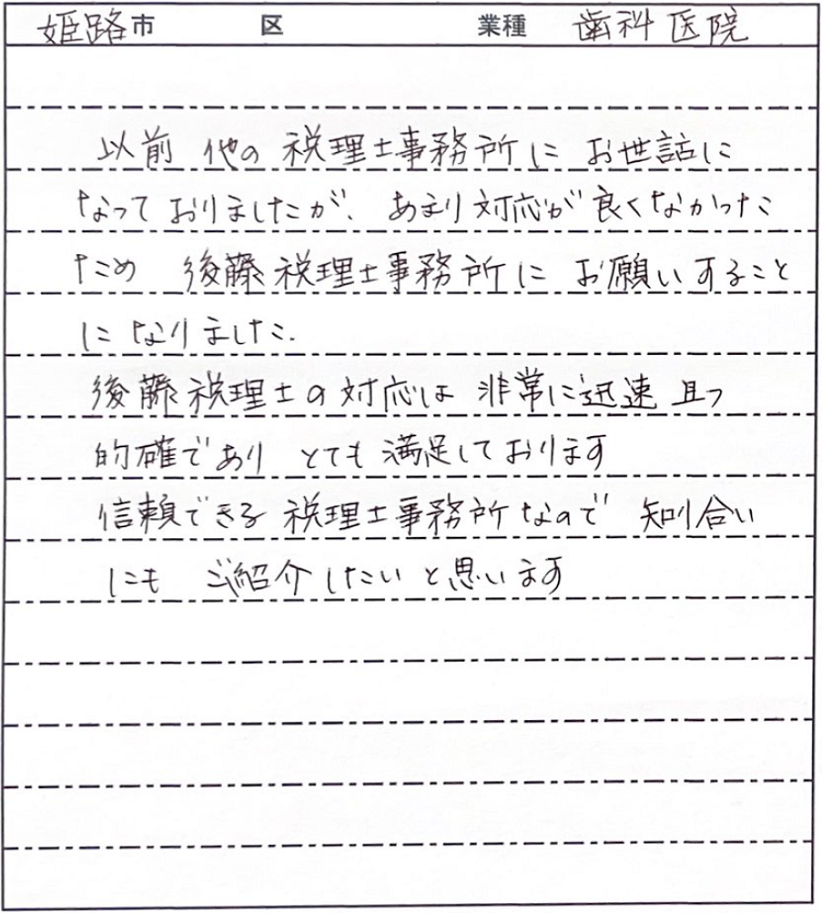 姫路市 区 業種 歯科医院
以前 他の 税理士事務所に お世話に
なって おりましたが、 あまり 対応が 良くなかった
ため 後藤税理士事務所に お願いすること
に なりました.
後藤税理士の対応は 非常に迅速 且つ
的確であり とても 満足しております
信頼できる 税理士事務所なので 知り合い
にも ご紹介したいと思います